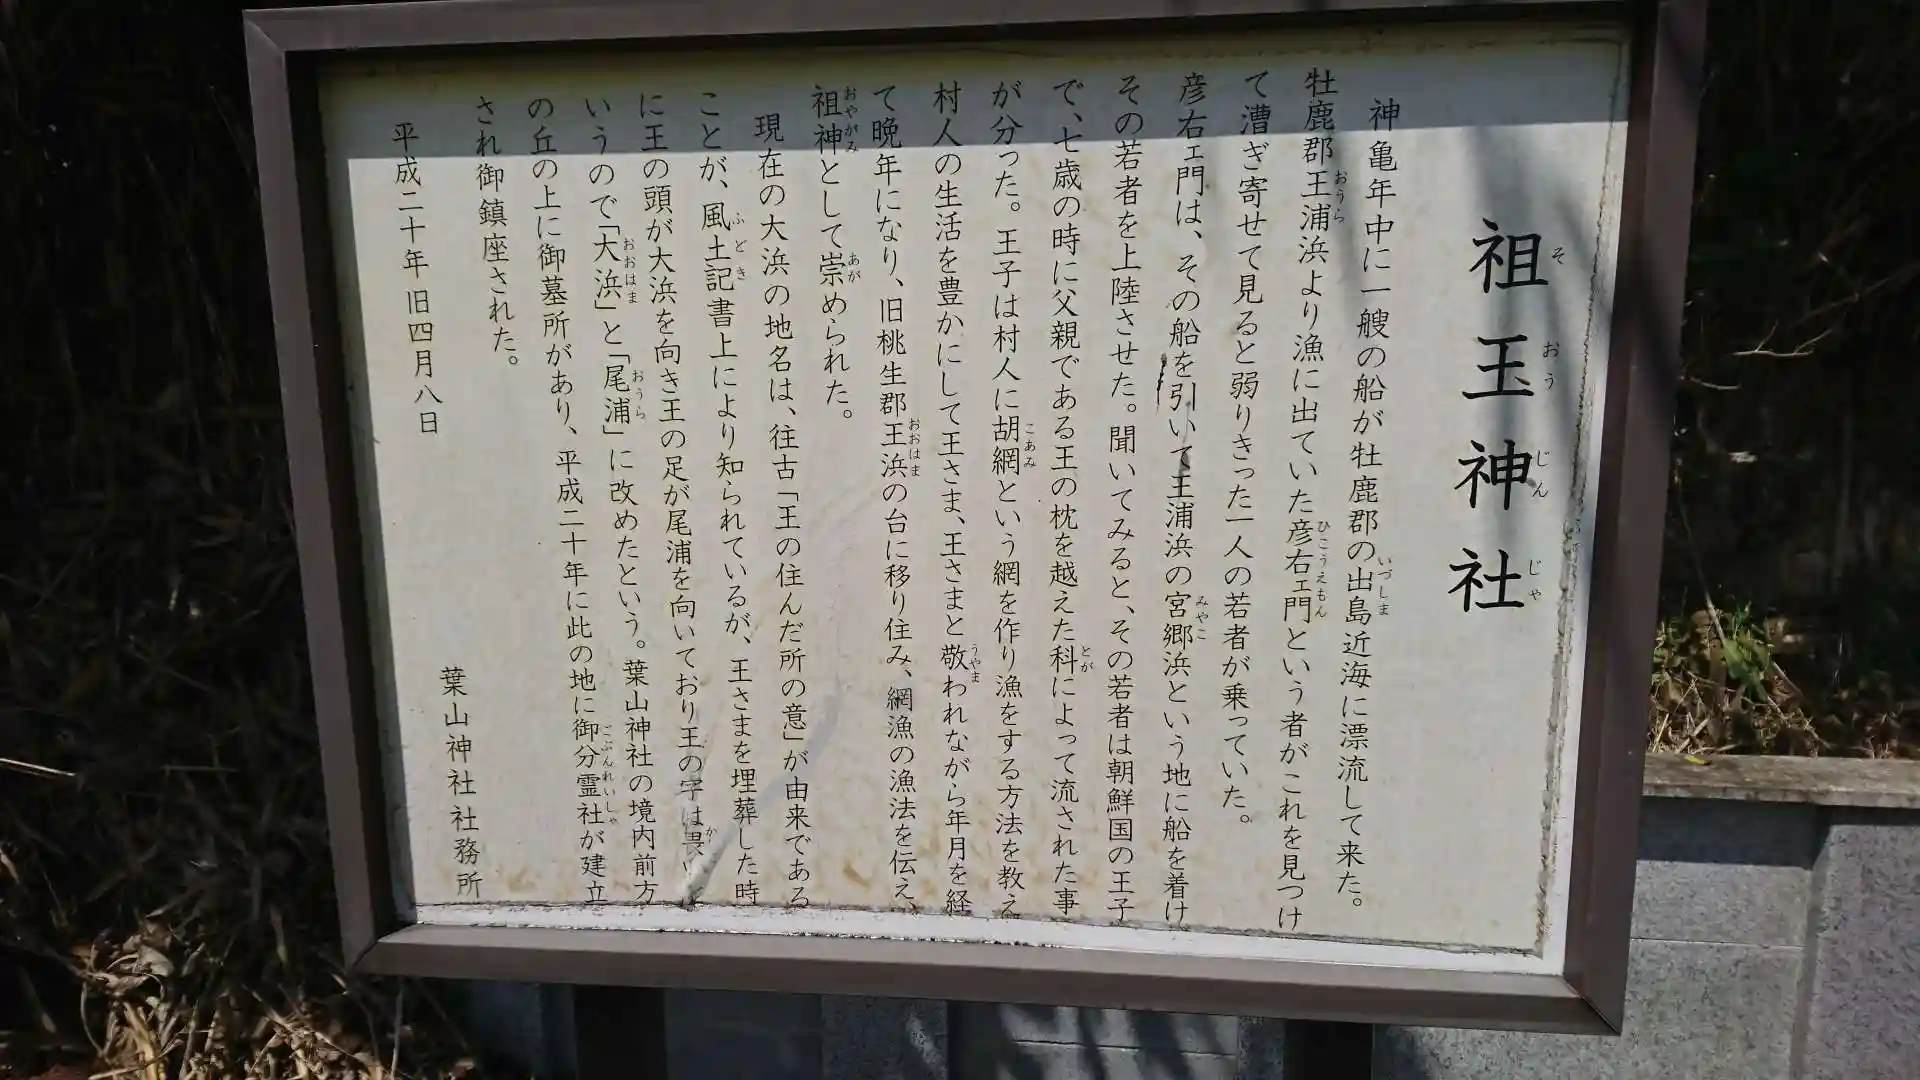 祖王神社
神亀年中に一艘の船が牡鹿郡の出島近海に漂流して来た。
牡鹿郡王浦浜より漁に出ていた彦右ェ門という者がこれを見つけ
て漕ぎ寄せて見ると弱りきった一人の若者が乗っていた。
彦右ェ門は、その船を引いて王浦浜の宮郷浜という地に船を着け
その若者を上陸させた。聞いてみると、その若者は朝鮮国の王子
で、七歳の時に父親である王の枕を越えた科によって流された事
が分った。王子は村人に胡網という網を作り漁をする方法を教え
村人の生活を豊かにして王さま、王さまと敬われながら年月を経
て晩年になり、旧桃生郡王浜の台に移り住み、網漁の漁法を伝え、
祖神として崇められた。
現在の大浜の地名は、往古「王の住んだ所の意」が由来である
ことが、風土記書上により知られているが、王さまを埋葬した時
に王の頭が大浜を向き王の足が尾浦を向いており王の字は畏いと
いうので「大浜」と「尾浦」に改めたという。葉山神社の境内前方
の丘の上に御墓所があり、平成二十年に此の地に御分霊社が建立
され御鎮座された。
平成二十年旧四月八日
葉山神社社務所